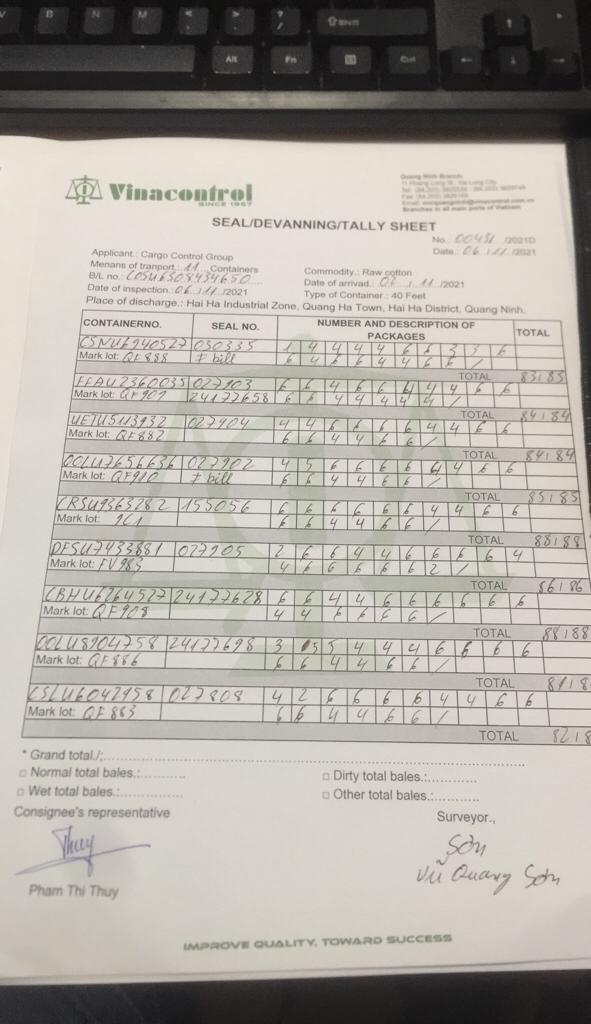 B N M < > ? Shift
Alt Fn Ctrl
Vinacontrol
SINCE 1957
Quang Ninh Branch:
11 Hoang Long St., Ha Long City
Branches in all main ports of Vietnam
SEAL/DEVANNING/TALLY SHEET
No.: 00431 /2021D
Date.: 06 / 11 /2021
Applicant.: Cargo Control Group
Menans of tranport.: 11 Containers
Commodity.: Raw cotton
B/L no.: COSU6308434650
Date of arrivad.: 06 / 11 /2021
Date of inspection.: 06 / 11 /2021
Type of Container.: 40 Feet
Place of discharge.: Hai Ha Industrial Zone, Quang Ha Town, Hai Ha District, Quang Ninh.
CONTAINERNO. SEAL NO. NUMBER AND DESCRIPTION OF PACKAGES TOTAL
CSNU6940527 030335 1 4 4 4 4 6 6 3 3 6
Mark lot: QF888 ≠ bill 6 4 6 6 4 4 6 6 /
TOTAL 83/83
FFAU2360035 027903 6 6 4 6 6 4 4 4 6 6
Mark lot: QF909 24177658 6 6 4 4 4 4 4 /
TOTAL 84/84
UETU5113932 027904 4 4 6 6 6 6 4 4 6 6
Mark lot: QF882 6 6 4 4 6 6 /
TOTAL 84/84
OOLU7656636 027902 4 5 6 6 6 6 4 4 6 6
Mark lot: QF910 ≠ bill 6 6 4 4 6 6 /
TOTAL 85/85
CRSU9363282 155056 6 6 6 6 6 6 4 4 6 6
Mark lot: 6 6 4 4 6 6 /
TOTAL 88/88
DFSU7433881 027905 2 6 6 4 4 6 6 6 6 4
Mark lot: FV983 4 6 6 6 6 6 2 /
TOTAL 86/86
CBHU6264527 24177628 6 6 4 4 6 6 6 6 6 6
Mark lot: QF908 4 4 6 6 6 6 /
TOTAL 88/88
OOLU8904758 24177698 3 5 5 4 4 4 6 6 6 6
Mark lot: QF886 6 6 4 4 6 6 /
TOTAL 81/8
CSLU6042958 027808 4 2 6 6 6 6 4 4 6 6
Mark lot: QF883 6 6 4 4 6 6 /
TOTAL 82/8
* Grand total./:
Normal total bales.:
Dirty total bales.:
Wet total bales.:
Other total bales.:
Consignee's representative
Surveyor.,
Thuy
Sơn
Pham Thi Thuy
Vũ Quang Sơn
IMPROVE QUALITY, TOWARD SUCCESS